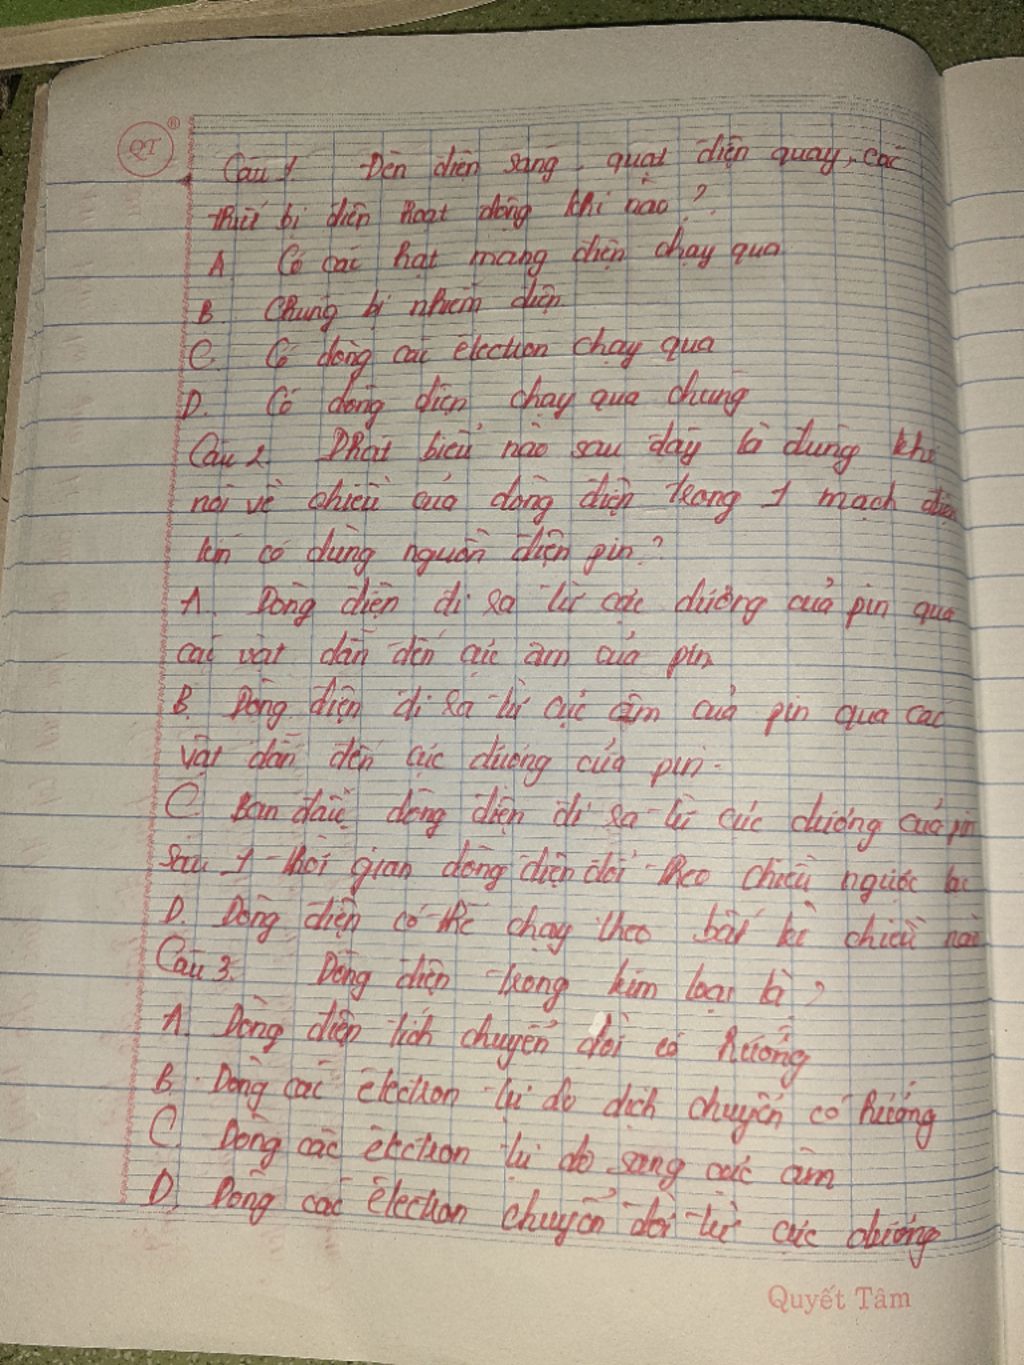 QT ®
Câu 1. Đèn điện sáng, quạt điện quay, các
thiết bị điện hoạt động khi nào?
A. Có các hạt mang điện chạy qua
B. Chúng bị nhiễm điện
C. Có dòng các êlectron chạy qua
D. Có dòng điện chạy qua chúng
Câu 2. Phát biểu nào sau đây là đúng khi
nói về chiều của dòng điện trong 1 mạch điện
kín có dùng nguồn điện pin?
A. Dòng điện đi ra từ cực dương của pin qua
các vật dẫn đến cực âm của pin
B. Dòng điện đi ra từ cực âm của pin qua các
vật dẫn đến cực dương của pin.
C. Ban đầu, dòng điện đi ra từ cực dương của pin
sau 1 thời gian dòng điện đổi theo chiều ngược lại
D. Dòng điện có thể chạy theo bất kì chiều nào
Câu 3. Dòng điện trong kim loại là?
A. Dòng điện tích chuyển dời có hướng
B. Dòng các êlectron tự do dịch chuyển có hướng
C. Dòng các êlectron tự do sang cực âm
D. Dòng các êlectron chuyển dời từ cực dương
Quyết Tâm